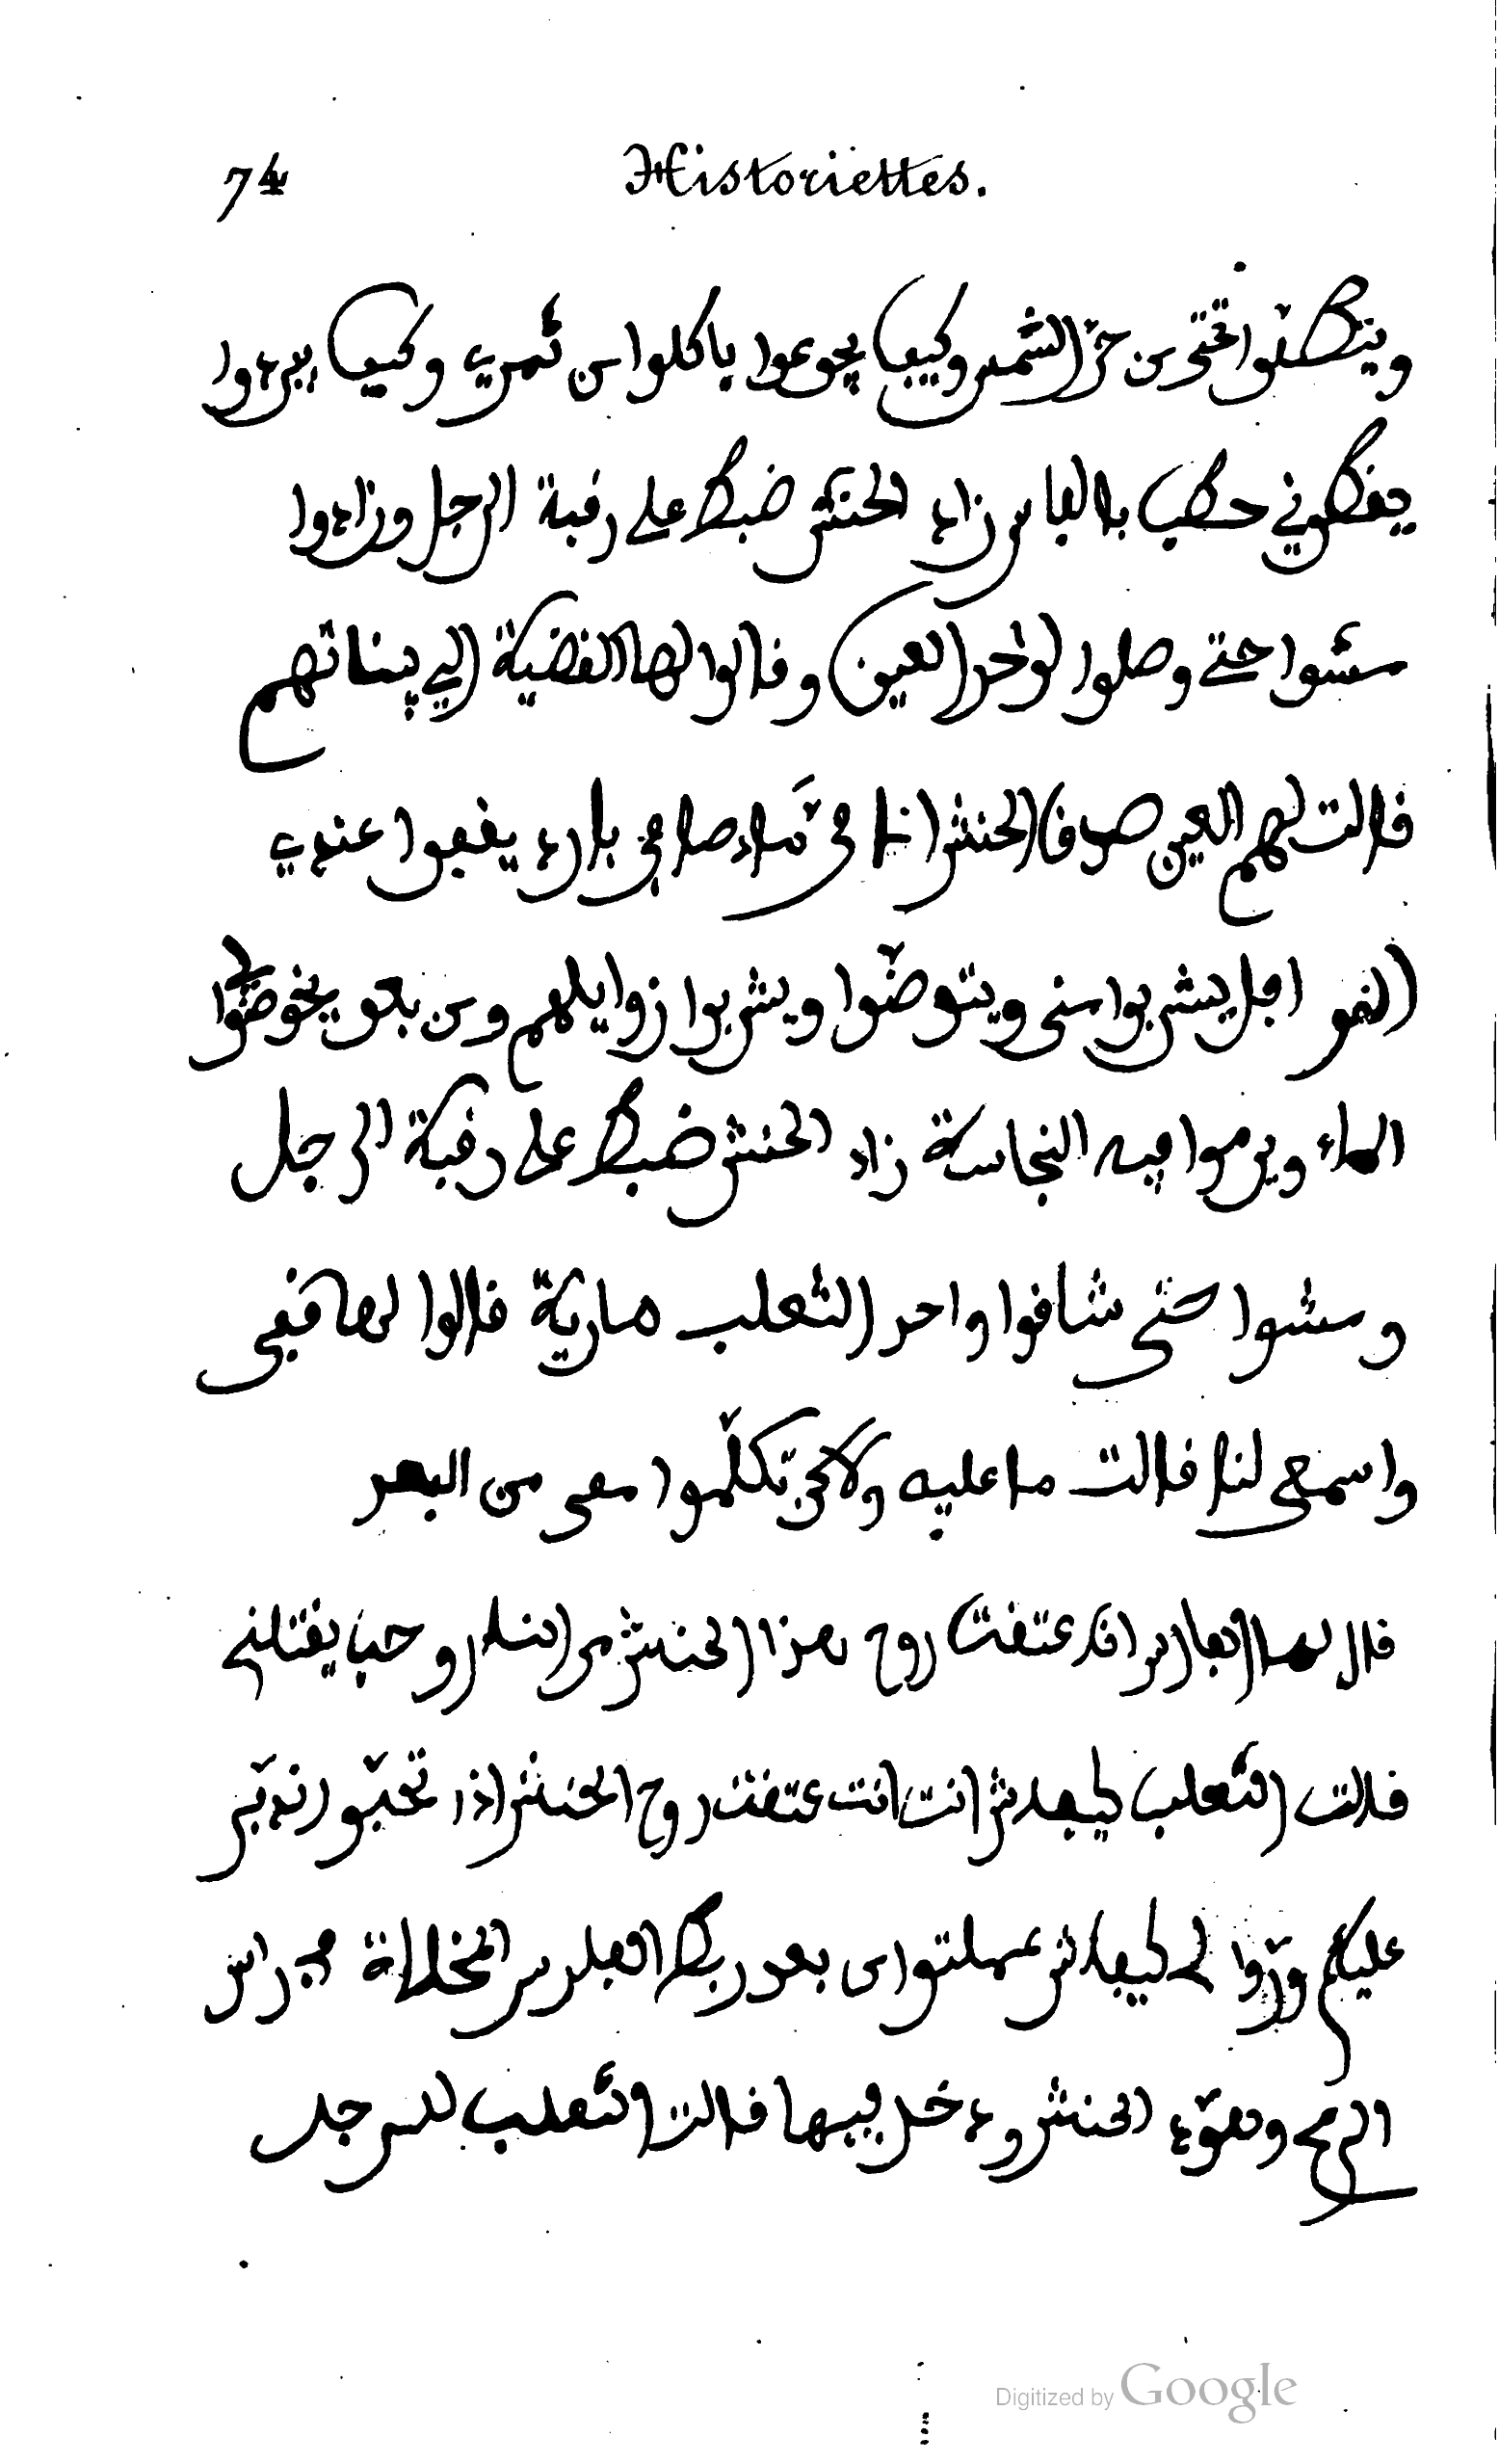 74 Historiettes.
ويتظلّوا تحتي من حرّ الشمس وكيف يجوعوا ياكلوا من ثمري وكيف يبردوا
يقطعوني حطب بالفاس زاد الحنش ضبط على رقبة الرجل وزادوا
مشوا حتى وصلوا لواحد العين وقالوا لها القضية الي بيناتهم
قالت لهم العين صدق الحنش انا في ماء صافي بارد يقفوا عندي
القوافل يشربوا مني ويتوضّوا ويشربوا زوايلهم ومن بعد يخوضوا
الماء ويرموا فيه النجاسة زاد الحنش ضبط على رقبة الرجل
ومشوا حتى شافوا واحد الثعلب هاربة قالوا لها قفي
واسمعي لنا قالت ما عليه ولاكن تكلّموا معي من البعد
قال لها الفارس انا عتقت روح هذا الحنش من النار وحب يقتلني
قالت الثعلب كيفاش انت عتقت روح الحنش اذا تحبّو ندبّر
عليكم ورّوا لي كيفاش عملتوا من بعد ربط الفارس المخلاة في راس
الرمح ومدّ الحنش ودخل فيها قالت الثعلب للرجل
Digitized by Google